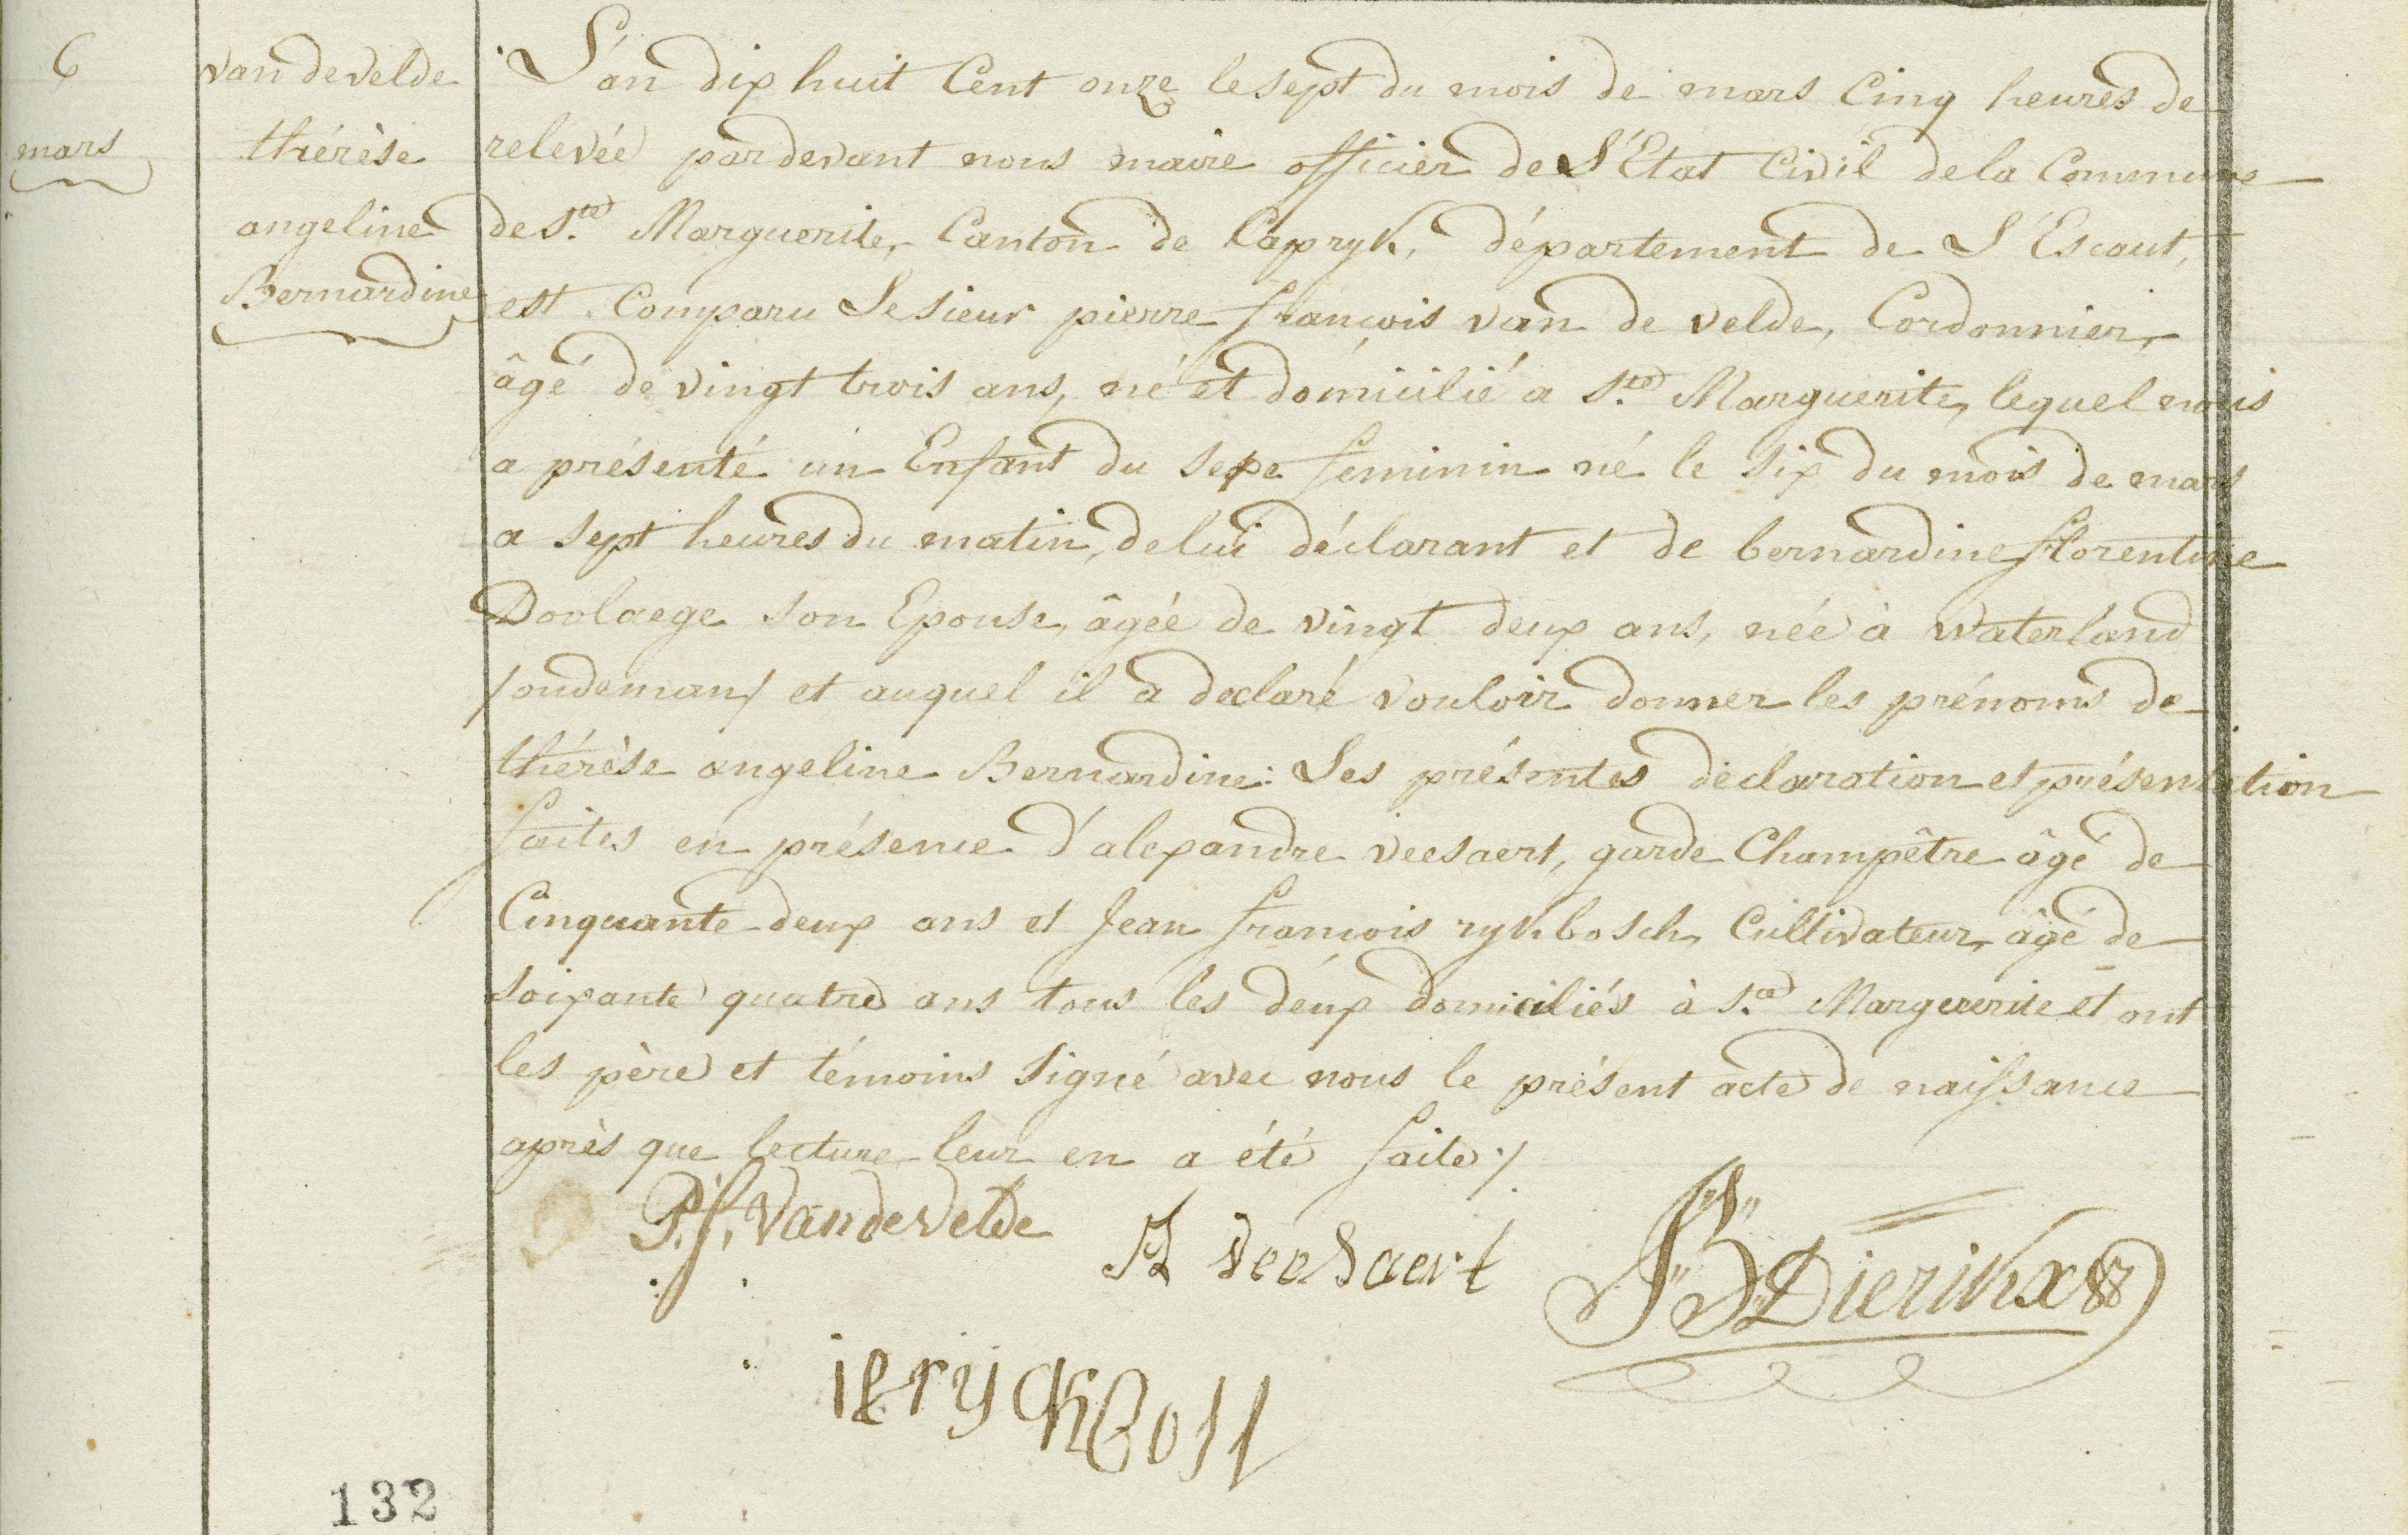 6
mars
van de velde
thérèse
angeline
Bernardine
L'an dix huit Cent onze le sept du mois de mars Cinq heures de
relevée pardevant nous maire officier de L'Etat Civil de la Commune
de Ste Marguerite, Canton de Capryk, département de L'Escaut,
est Comparu Le sieur pierre françois van de velde, Cordonnier,
âgé de vingt trois ans, né et domicilié a Ste Marguerite, lequel nous
a présenté un Enfant du sexe feminin né le six du mois de mars
a sept heures du matin, de lui déclarant et de bernardine florentine
Doolaege son Epouse, âgée de vingt deux ans, née à waterland
/oudeman/ et auquel il a declaré vouloir donner les prénoms de
thérèse angeline Bernardine: Les présentes déclaration et présentation
faites en présence d'alexandre veesaert, garde Champêtre âgé de
Cinquante deux ans et Jean françois rykbosch, Cultivateur, âgé de
soixante quatre ans tous les deux domiciliés à Ste Marguerite et ont
les père et témoins signé avec nous le présent acte de naissance
après que lecture leur en a été faite ./.
P. f. Vandevelde
A veesaert
JB Dierikx
i f rijckbosch
132